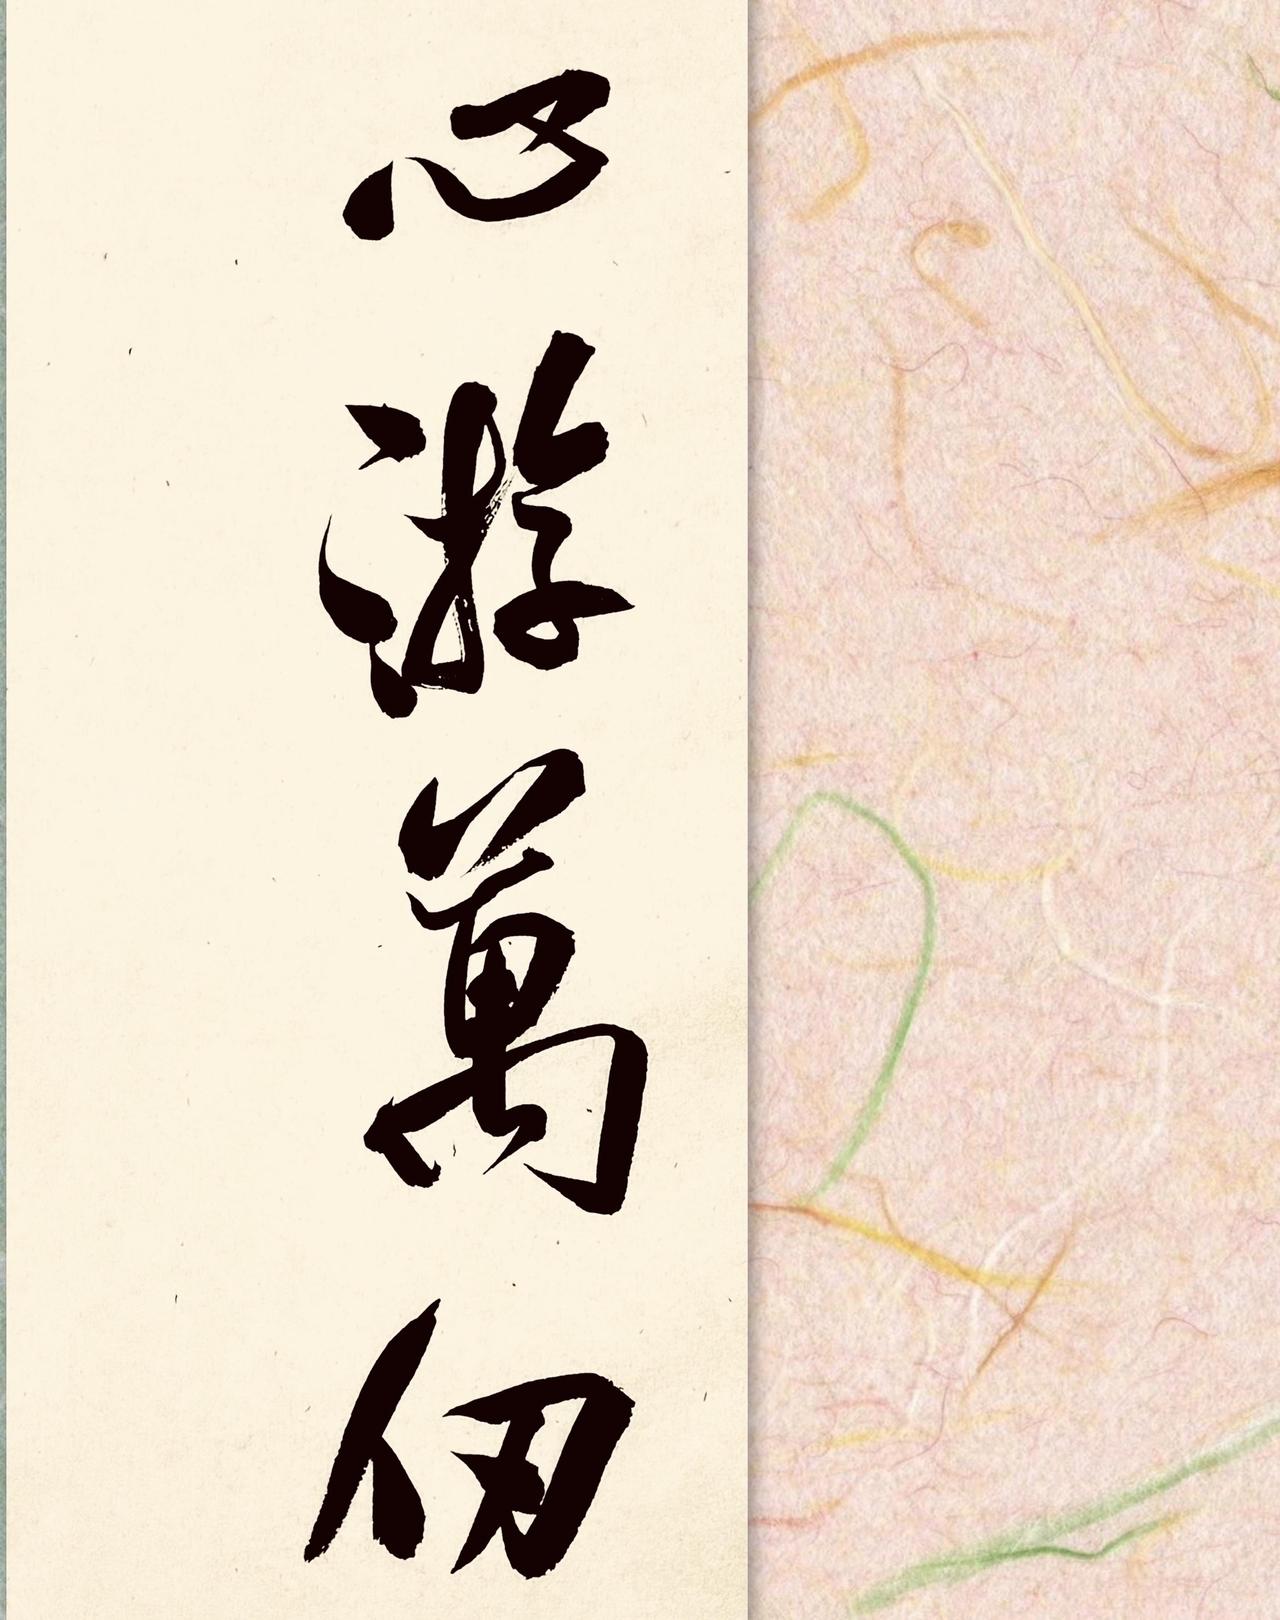 心游萬仞